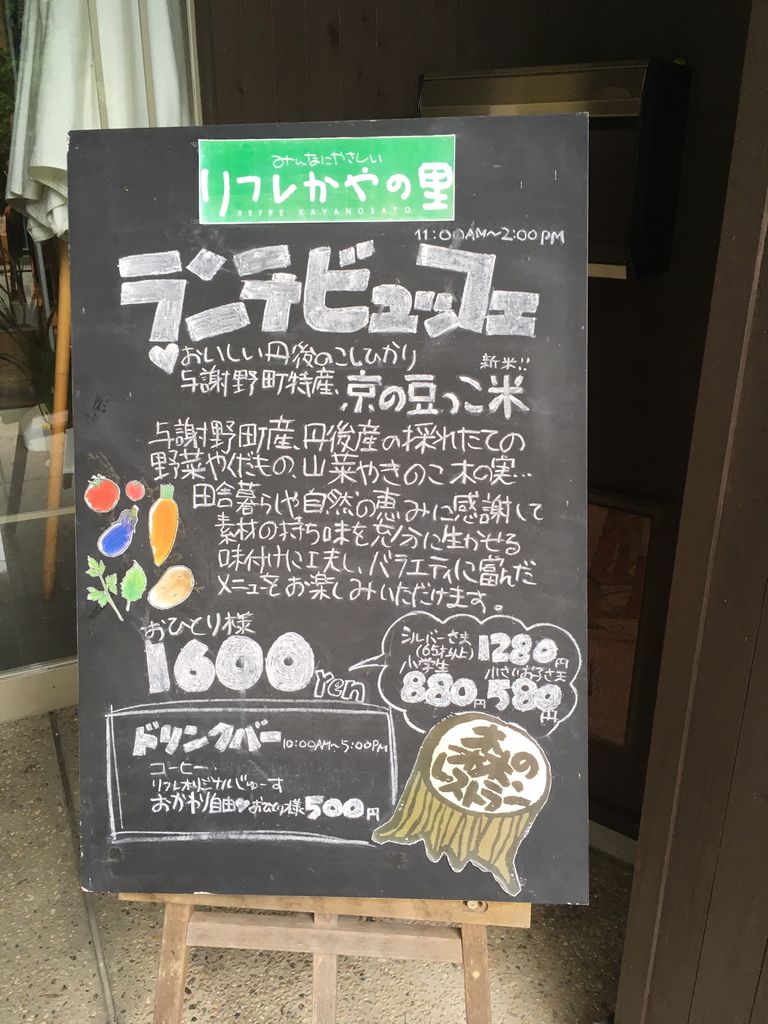 みんなにやさしい
リフレかやの里
REFRE KAYANOSATO
11:00AM～2:00PM
ランチビュッフェ
おいしい丹後のこしひかり
新米!!
与謝野町特産、京の豆っこ米
与謝野町産、丹後産の採れたての
野菜やくだもの、山菜やきのこ木の実…
田舎暮らしや自然の恵みに感謝して
素材の持ち味を充分に生かせる
味付けに工夫し、バラエティに富んだ
メニューをお楽しみいただけます。
おひとり様
1600yen
シルバーさま
(65才以上) 1280円
小学生
880円
小さいお子さま
580円
ドリンクバー 10:00AM～5:00PM
コーヒー・
リフレオリジナルじゅーす
おかわり自由♥おひとり様500円
森の
レストラン